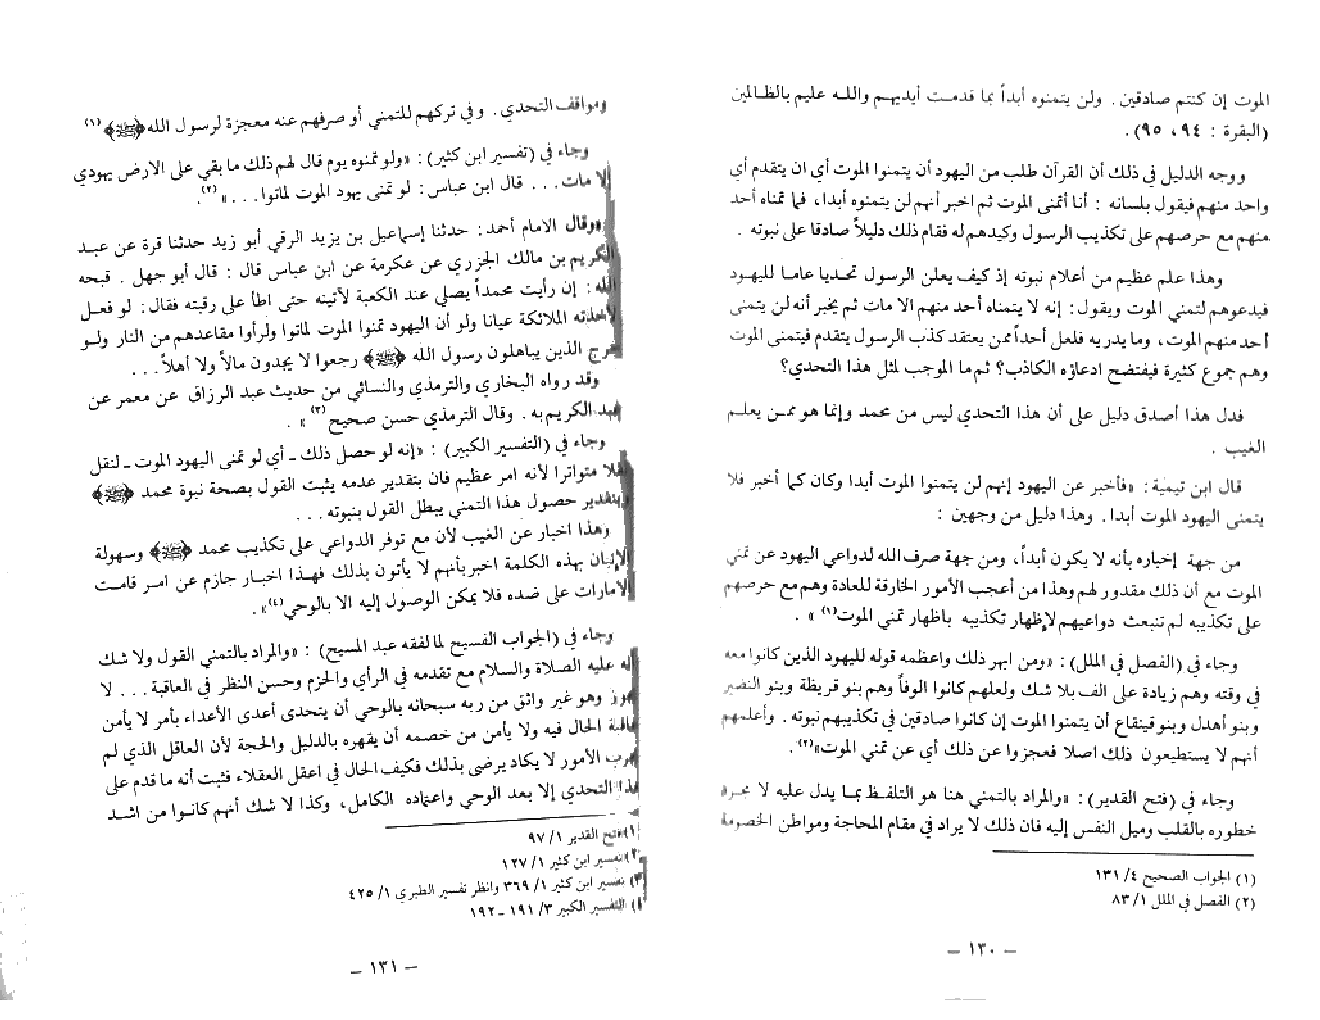 الموت إن كنتم صادقين . ولن يتمنوه أبداً بما قدمت أيديهم والله عليم بالظالمين
(البقرة : ٩٤، ٩٥).
ووجه الدليل في ذلك أن القرآن طلب من اليهود أن يتمنوا الموت أي ان يتقدم أي
واحد منهم فيقول بلسانه : أنا أتمنى الموت ثم اخبر أنهم لن يتمنوه أبدا، فما تمناه أحد
منهم مع حرصهم على تكذيب الرسول وكيدهم له فقام ذلك دليلاً صادقا على نبوته .
وهذا علم عظيم من أعلام نبوته إذ كيف يعلن الرسول تحديا عاما لليهود
فيدعوهم لتمني الموت ويقول: إنه لا يتمناه أحد منهم الا مات ثم يخبر أنه لن يتمنى
أحد منهم الموت، وما يدريه فلعل أحداً ممن يعتقد كذب الرسول يتقدم فيتمنى الموت
وهم جموع كثيرة فيفتضح ادعاؤه الكاذب؟ ثم ما الموجب لمثل هذا التحدي؟
فدل هذا أصدق دليل على أن هذا التحدي ليس من محمد وإنما هو ممن يعلم
الغيب .
قال ابن تيمية: «فأخبر عن اليهود إنهم لن يتمنوا الموت أبدا وكان كما أخبر فلا
يتمنى اليهود الموت أبدا. وهذا دليل من وجهين :
من جهة إخباره بأنه لا يكون أبداً، ومن جهة صرف الله لدواعي اليهود عن تمني
الموت مع أن ذلك مقدور لهم وهذا من أعجب الأمور الخارقة للعادة وهم مع حرصهم
على تكذيبه لم تنبعث دواعيهم لإظهار تكذيبه باظهار تمني الموت(١)» .
وجاء في (الفصل في الملل): «ومن ابهر ذلك واعظمه قوله لليهود الذين كانوا معه
في وقته وهم زيادة على الف بلا شك ولعلهم كانوا الوفاً وهم بنو قريظة وبنو النضير
وبنو أهدل وبنو قينقاع أن يتمنوا الموت إن كانوا صادقين في تكذيبهم نبوته. وأعلمهم
أنهم لا يستطيعون ذلك اصلا فعجزوا عن ذلك أي عن تمني الموت»(٢).
وجاء في (فتح القدير): «والمراد بالتمني هنا هو التلفظ بما يدل عليه لا مجرد
خطوره بالقلب وميل النفس إليه فان ذلك لا يراد في مقام المحاجة ومواطن الخصومة
(١) الجواب الصحيح ٤/ ١٣١
(٢) الفصل في الملل ١/ ٨٣
– ١٣٠ –
ومواقف التحدي. وفي تركهم للتمني أو صرفهم عنه معجزة لرسول الله ﴿ﷺ﴾(١)
وجاء في (تفسير ابن كثير): «ولو تمنوه يوم قال لهم ذلك ما بقي على الارض يهودي
إلا مات... قال ابن عباس: لو تمنى يهود الموت لماتوا...»(٢).
«وقال الامام أحمد: حدثنا إسماعيل بن يزيد الرقي أبو زيد حدثنا قرة عن عبد
الكريم بن مالك الجزري عن عكرمة عن ابن عباس قال : قال أبو جهل . قبحه
الله: إن رأيت محمداً يصلي عند الكعبة لأتينه حتى اطأ على رقبته فقال: لو فعل
لأخذته الملائكة عيانا ولو أن اليهود تمنوا الموت لماتوا ولرأوا مقاعدهم من النار ولو
خرج الذين يباهلون رسول الله ﴿ﷺ﴾ رجعوا لا يجدون مالاً ولا أهلاً...
وقد رواه البخاري والترمذي والنسائي من حديث عبد الرزاق عن معمر عن
عبد الكريم به. وقال الترمذي حسن صحيح(٣)» .
وجاء في (التفسير الكبير) : «إنه لو حصل ذلك ـ أي لو تمنى اليهود الموت ـ لنقل
نقلا متواترا لأنه امر عظيم فان بتقدير عدمه يثبت القول بصحة نبوة محمد ﴿ﷺ﴾
وبتقدير حصول هذا التمني يبطل القول بنبوته ...
وهذا اخبار عن الغيب لأن مع توفر الدواعي على تكذيب محمد ﴿ﷺ﴾ وسهولة
الإتيان بهذه الكلمة اخبر بأنهم لا يأتون بذلك فهذا اخبار جازم عن امر قامت
الامارات على ضده فلا يمكن الوصول إليه الا بالوحي(٤)» .
وجاء في (الجواب الفسيح لما لفقه عبد المسيح) : «والمراد بالتمني القول ولا شك
أنه عليه الصلاة والسلام مع تقدمه في الرأي والحزم وحسن النظر في العاقبة... لا
يجوز وهو غير واثق من ربه سبحانه بالوحي أن يتحدى أعدى الأعداء بأمر لا يأمن
عاقبة الحال فيه ولا يأمن من خصمه أن يقهره بالدليل والحجة لأن العاقل الذي لم
يجرب الأمور لا يكاد يرضى بذلك فكيف الحال في اعقل العقلاء فثبت أنه ما قدم على
هذا التحدي إلا بعد الوحي واعتماده الكامل، وكذا لا شك أنهم كانوا من اشد
(١) فتح القدير ١/ ٩٧
(٢) تفسير ابن كثير ١/ ١٢٧
(٣) تفسير ابن كثير ١/ ٣٦٩ وانظر تفسير الطبري ١/ ٤٢٥
(٤) التفسير الكبير ٣/ ١٩١ – ١٩٢
– ١٣١ –